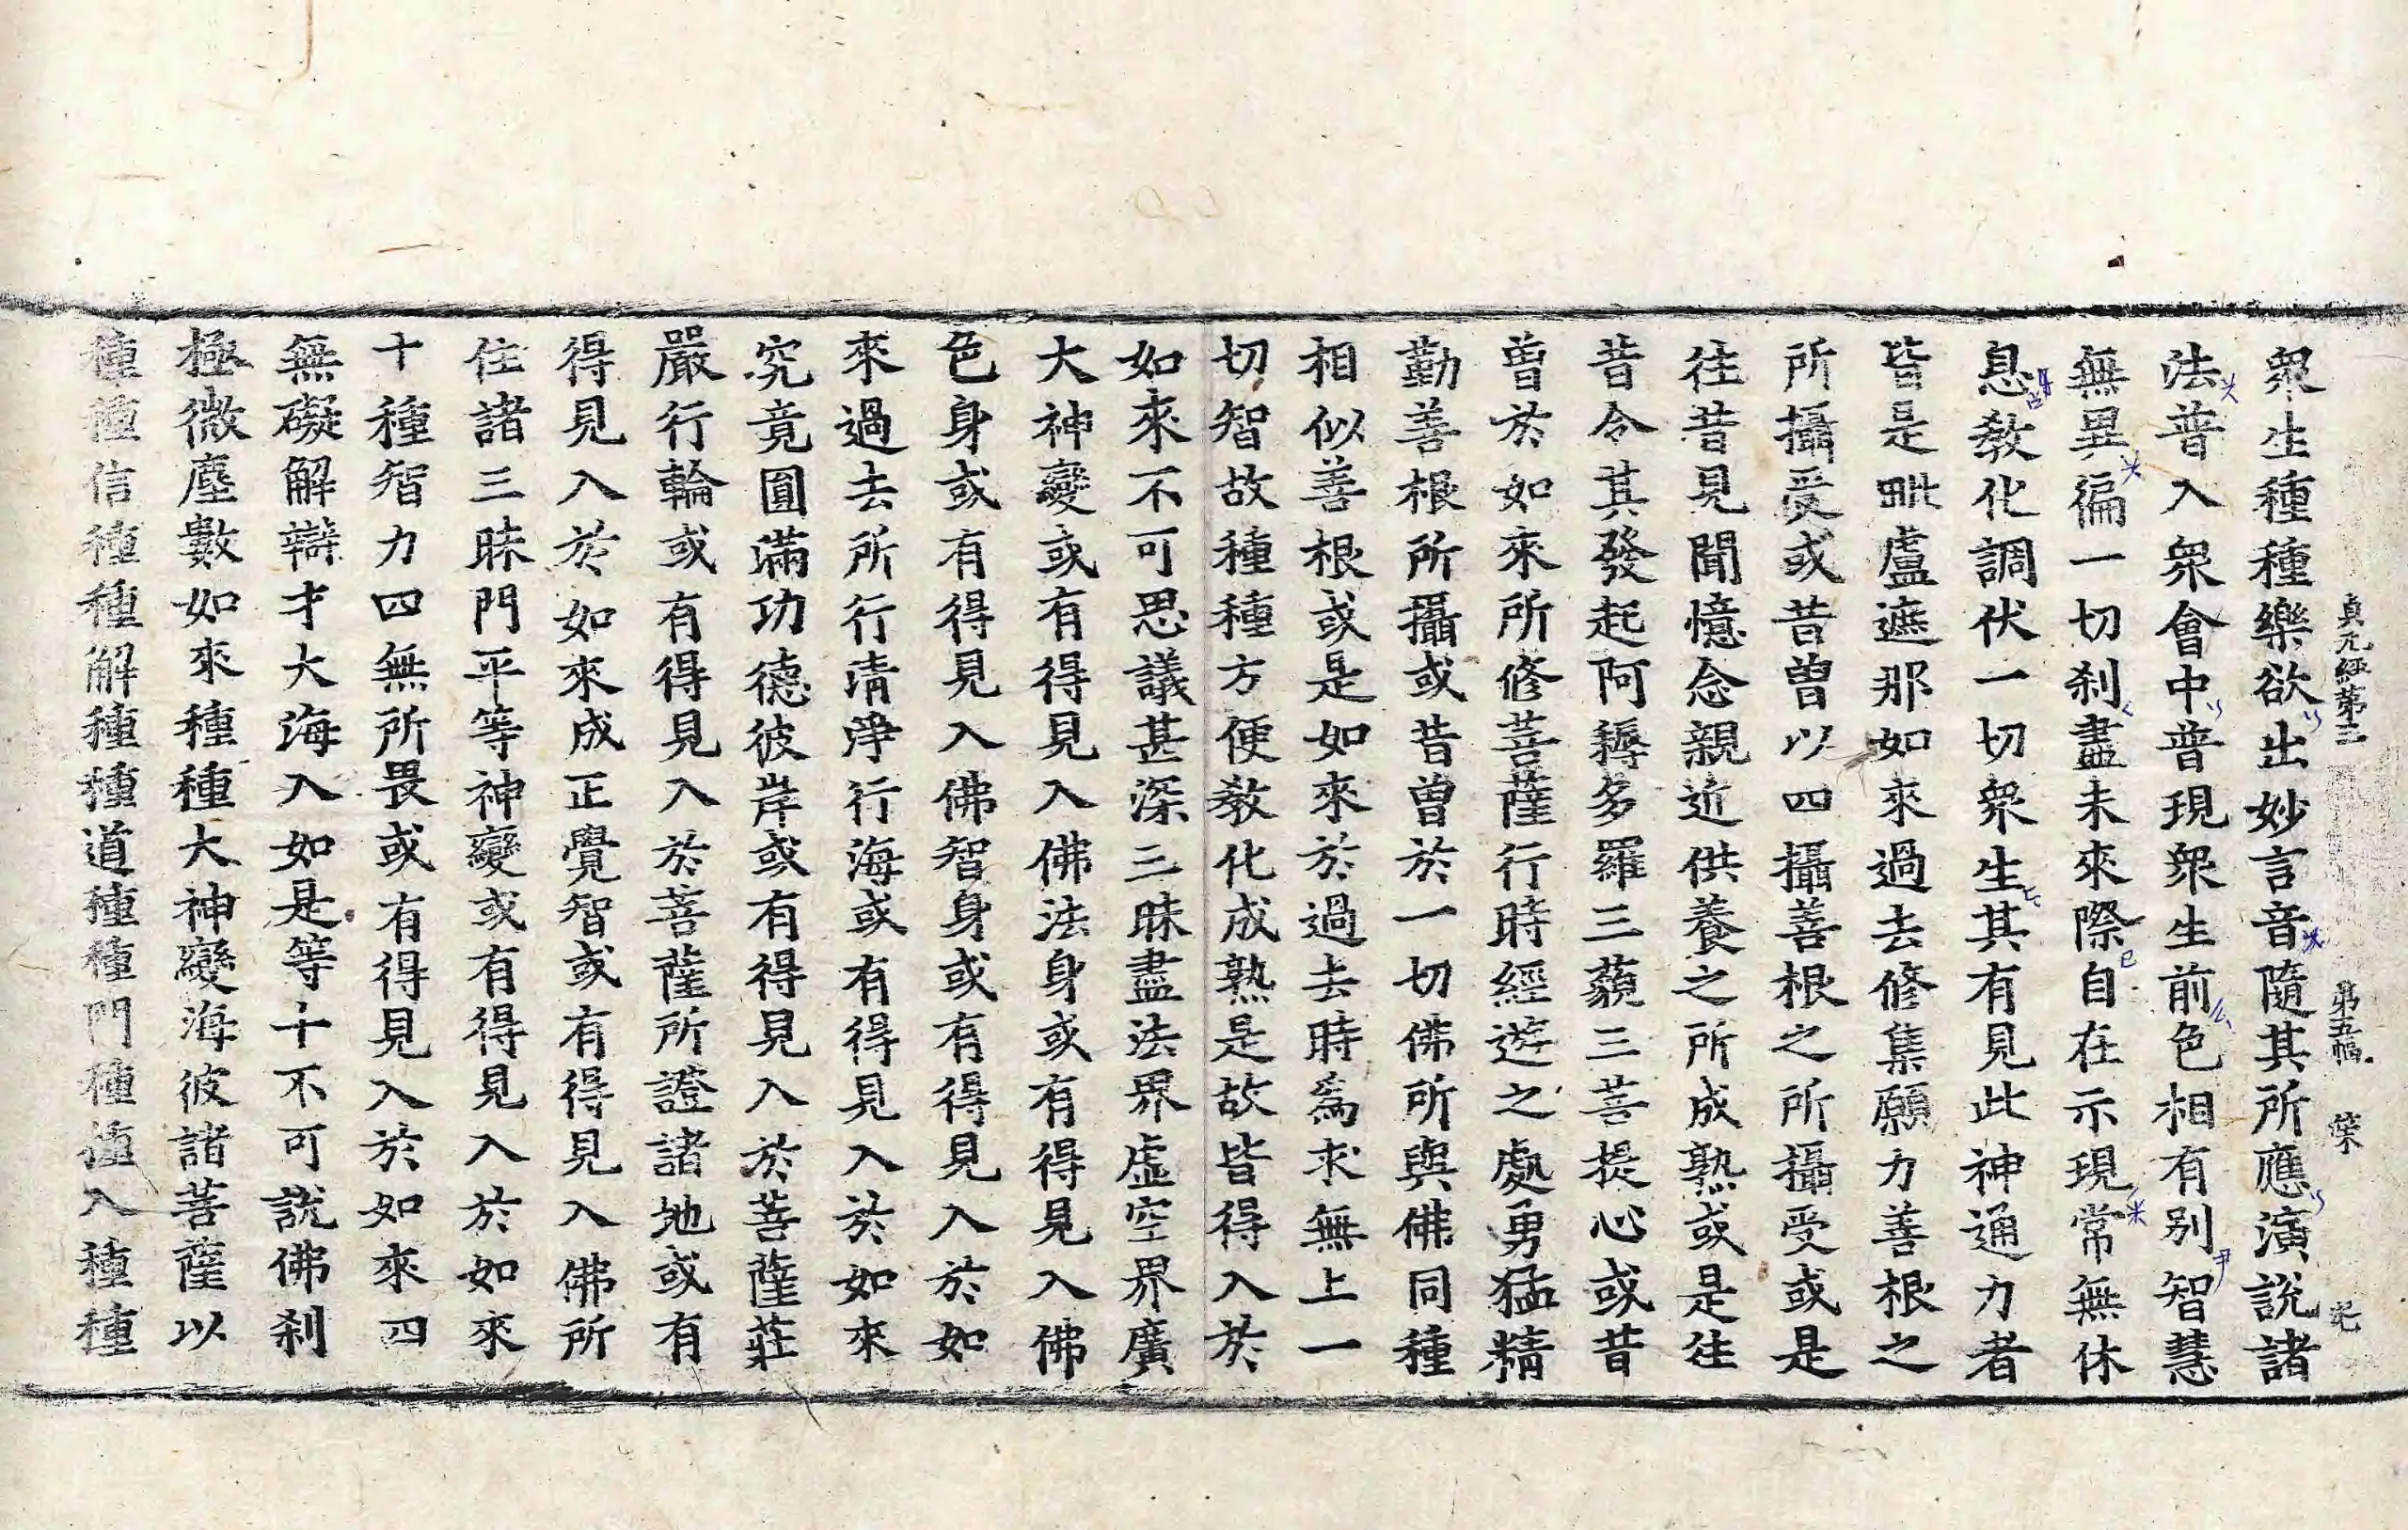 貞元經第三 第五幅 葉
衆生種種樂欲出妙言音隨其所應演說諸
法普入衆會中普現衆生前色相有别智慧
無異徧一切刹盡未來際自在示現常無休
息敎化調伏一切衆生其有見此神通力者
皆是毗盧遮那如來過去修集願力善根之
所攝受或昔曽以四攝善根之所攝受或是
往昔見聞憶念親近供養之所成熟或是往
昔令其發起阿耨多羅三藐三菩提心或昔
曽於如來所修菩薩行時經遊之處勇猛精
勤善根所攝或昔曽於一切佛所與佛同種
相似善根或是如來於過去時為求無上一
切智故種種方便敎化成熟是故皆得入於
如來不可思議甚深三昧盡法界虛空界廣
大神變或有得見入佛法身或有得見入佛
色身或有得見入佛智身或有得見入於如
來過去所行清淨行海或有得見入於如來
究竟圓滿功德彼岸或有得見入於菩薩莊
嚴行輪或有得見入於菩薩所證諸地或有
得見入於如來成正覺智或有得見入佛所
住諸三昧門平等神變或有得見入於如來
十種智力四無所畏或有得見入於如來四
無礙解辯才大海入如是等十不可說佛刹
極微塵數如來種種大神變海彼諸菩薩以
種種信種種解種種道種種門種種入種種